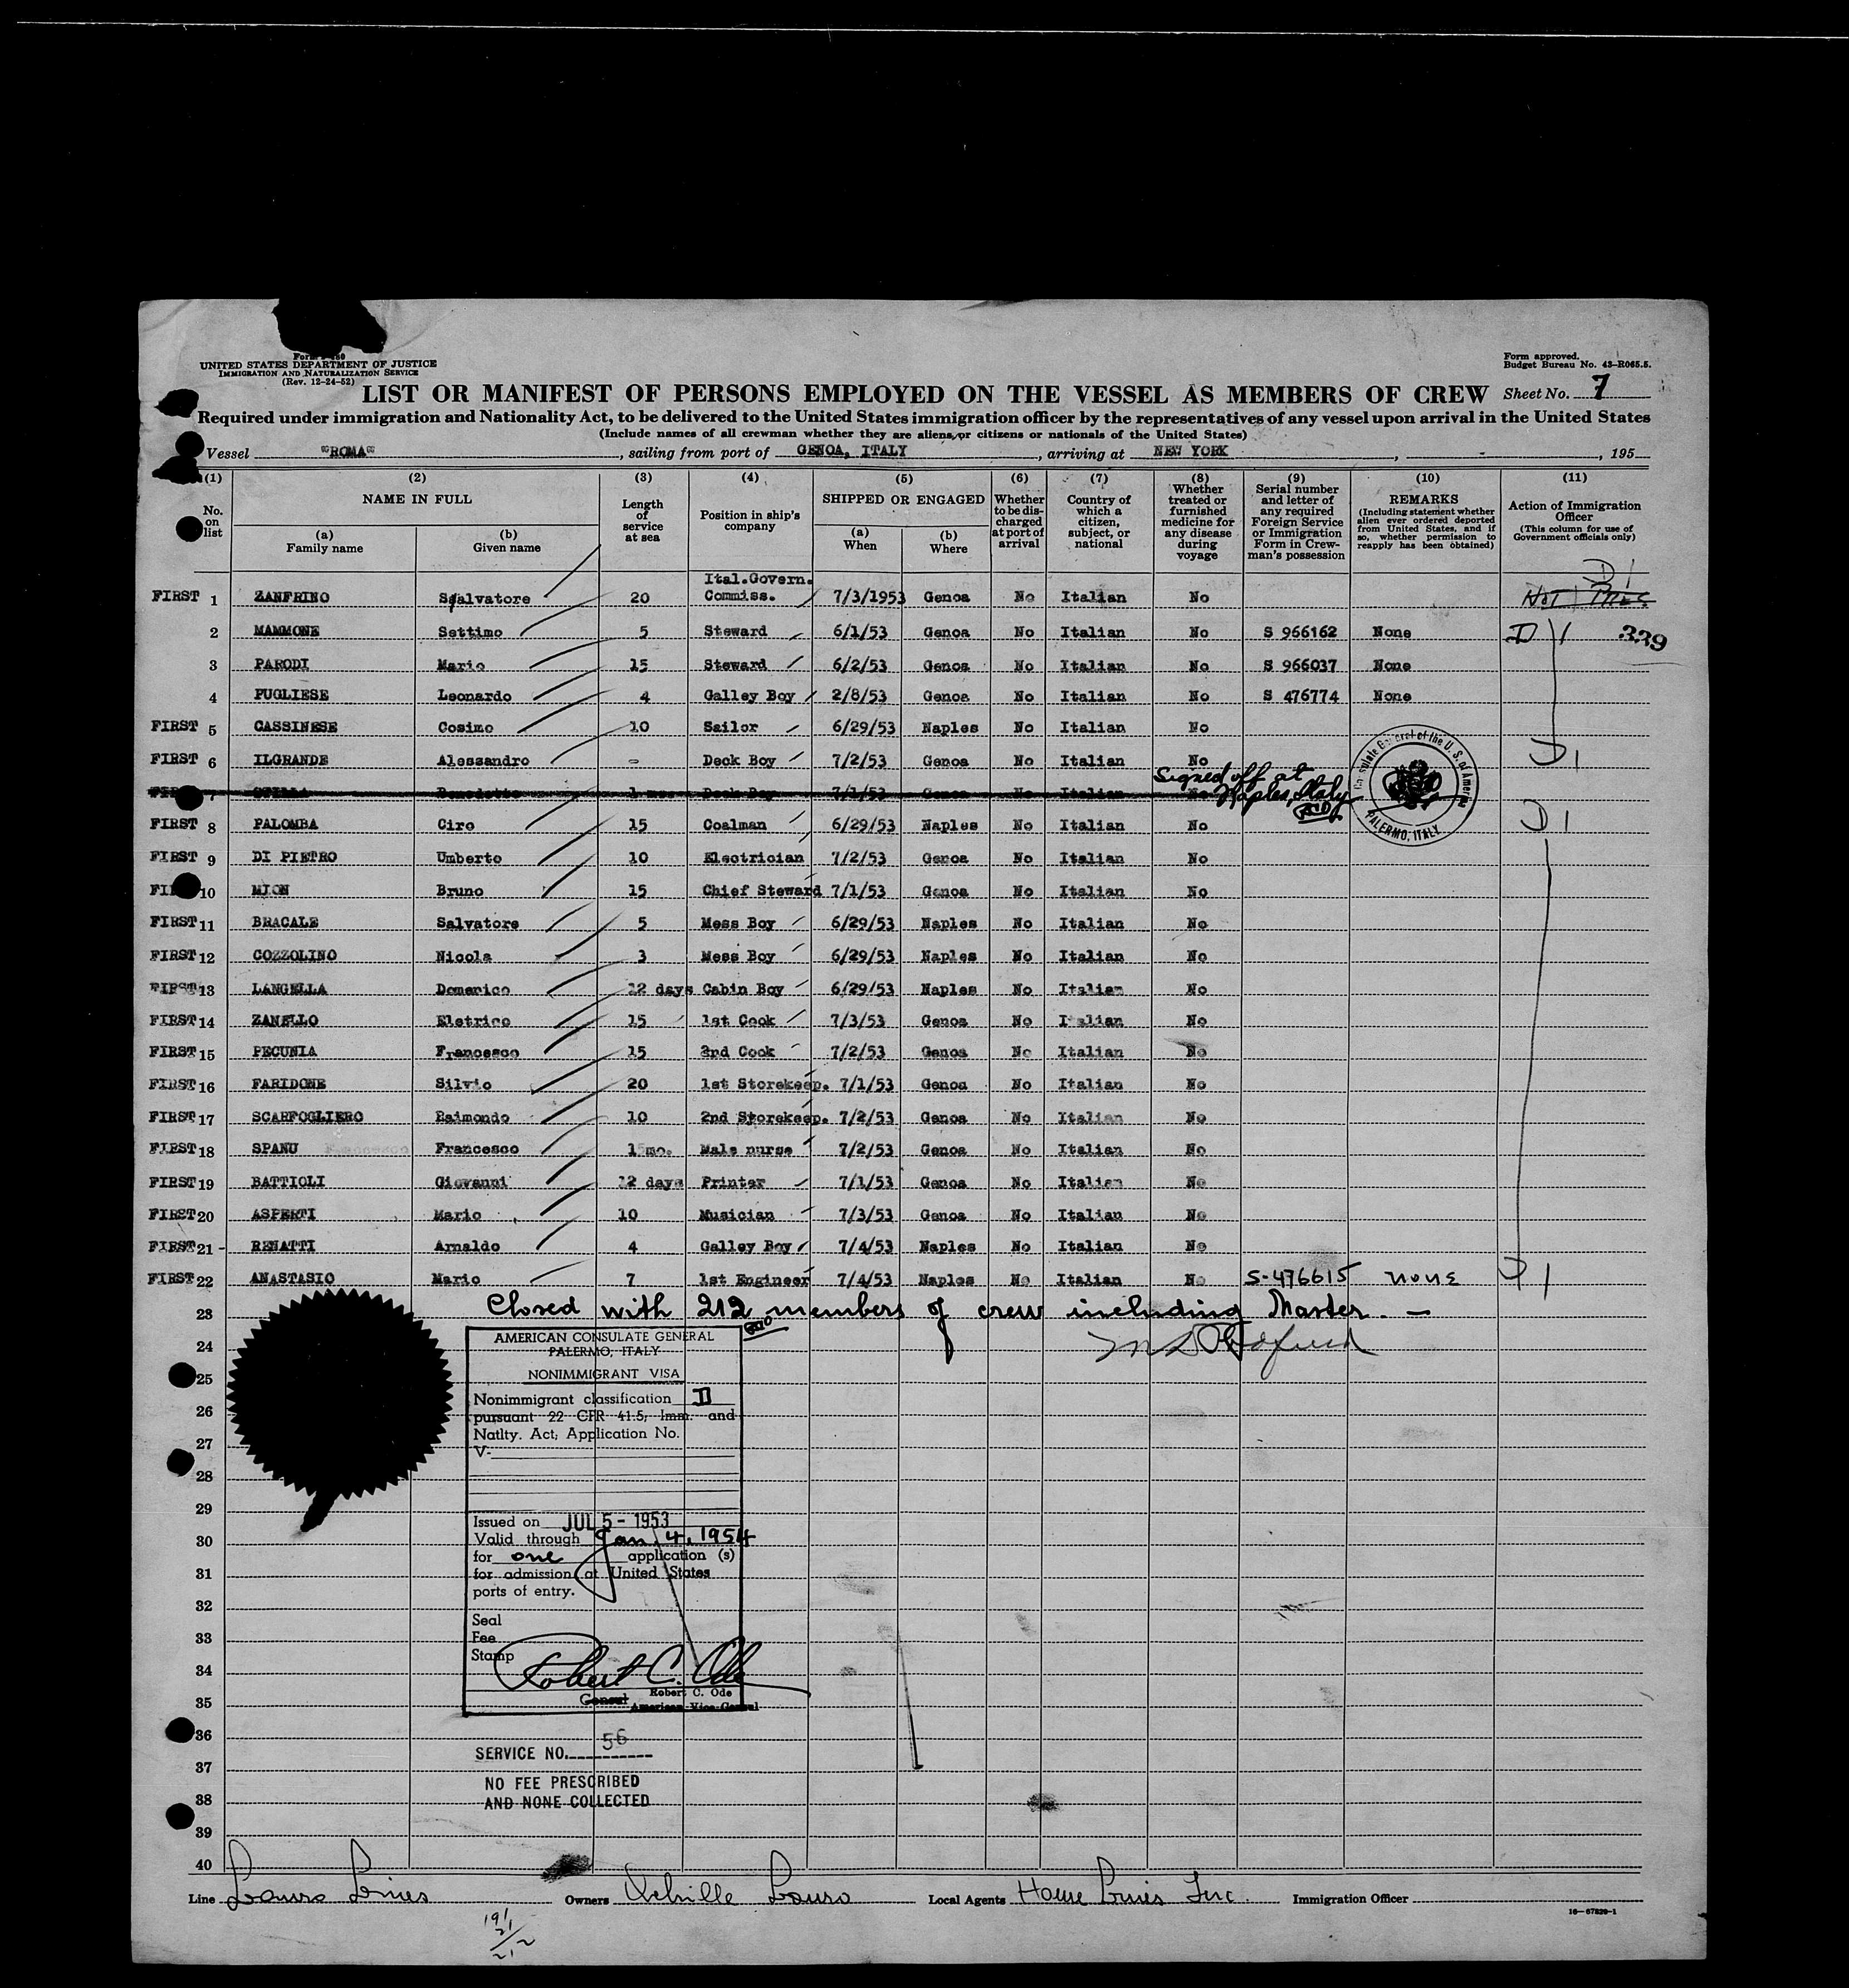 Form I-480
UNITED STATES DEPARTMENT OF JUSTICE
IMMIGRATION AND NATURALIZATION SERVICE
(Rev. 12-24-52)
Form approved.
Budget Bureau No. 43-R065.5.
LIST OR MANIFEST OF PERSONS EMPLOYED ON THE VESSEL AS MEMBERS OF CREW Sheet No. 7
Required under immigration and Nationality Act, to be delivered to the United States immigration officer by the representatives of any vessel upon arrival in the United States
(Include names of all crewman whether they are aliens, or citizens or nationals of the United States)
Vessel "ROMA", sailing from port of GENOA, ITALY, arriving at NEW YORK, , 195
(1) (2) (3) (4) (5) (6) (7) (8) (9) (10) (11)
No. on list
NAME IN FULL
(a) Family name
(b) Given name
Length of service at sea
Position in ship's company
SHIPPED OR ENGAGED
(a) When
(b) Where
Whether to be discharged at port of arrival
Country of which a citizen, subject, or national
Whether treated or furnished medicine for any disease during voyage
Serial number and letter of any required Foreign Service or Immigration Form in Crewman's possession
REMARKS
(Including statement whether alien ever ordered deported from United States, and if so, whether permission to reapply has been obtained)
Action of Immigration Officer
(This column for use of Government officials only)
D1
FIRST 1 ZANFRINO Salvatore 20 Ital.Govern. Commiss. 7/3/1953 Genoa No Italian No NOT PRES.
2 MAMMONE Settimo 5 Steward 6/1/53 Genoa No Italian No S 966162 None D 1 339
3 PARODI Mario 15 Steward 6/2/53 Genoa No Italian No S 966037 None
4 PUGLIESE Leonardo 4 Galley Boy 2/8/53 Genoa No Italian No S 476774 None
FIRST 5 CASSINESE Cosimo 10 Sailor 6/29/53 Naples No Italian No
FIRST 6 ILGRANDE Alessandro - Deck Boy 7/2/53 Genoa No Italian No D1
7 Deck Boy 7/1/53 Genoa No Italian No Signed off at Naples, Italy
Consulate General of the U. S. of America
PALERMO, ITALY
FIRST 8 PALOMBA Ciro 15 Coalman 6/29/53 Naples No Italian No D1
FIRST 9 DI PIETRO Umberto 10 Electrician 7/2/53 Genoa No Italian No
10 MION Bruno 15 Chief Steward 7/1/53 Genoa No Italian No
FIRST 11 BRACALE Salvatore 5 Mess Boy 6/29/53 Naples No Italian No
FIRST 12 COZZOLINO Nicola 3 Mess Boy 6/29/53 Naples No Italian No
FIRST 13 LANGELLA Domenico 12 days Cabin Boy 6/29/53 Naples No Italian No
FIRST 14 ZANELLO Eletrico 15 1st Cook 7/3/53 Genoa No Italian No
FIRST 15 PECUNIA Francesco 15 3rd Cook 7/2/53 Genoa No Italian No
FIRST 16 FARIDONE Silvio 20 1st Storekeep. 7/1/53 Genoa No Italian No
FIRST 17 SCARFOGLIERO Raimondo 10 2nd Storekeep. 7/2/53 Genoa No Italian No
FIRST 18 SPANU Francesco 1 mo. Male nurse 7/2/53 Genoa No Italian No
FIRST 19 BATTIOLI Giovanni 12 days Printer 7/1/53 Genoa No Italian No
FIRST 20 ASPERTI Mario 10 Musician 7/3/53 Genoa No Italian No
FIRST 21 - RENATTI Arnaldo 4 Galley Boy 7/4/53 Naples No Italian No
FIRST 22 ANASTASIO Mario 7 1st Engineer 7/4/53 Naples No Italian No S-476615 none D1
23 Closed with 212 members of crew including Master. —
24
25
26
27
28
29
30
31
32
33
34
35
36
37
38
39
40
AMERICAN CONSULATE GENERAL
PALERMO, ITALY
NONIMMIGRANT VISA
Nonimmigrant classification D
pursuant 22 CFR 41.5; Imm. and
Natlty. Act; Application No.
V-
Issued on JUL 5 - 1953
Valid through Jan. 4, 1954
for one application (s)
for admission at United States
ports of entry.
Seal
Fee
Stamp
Robert C. Ode
Robert C. Ode
Consul American Vice Consul
SERVICE NO. 56
NO FEE PRESCRIBED
AND NONE COLLECTED
Line Lauro Lines Owners Achille Lauro Local Agents Home Lines Inc. Immigration Officer
16—67829-1
191
21
212